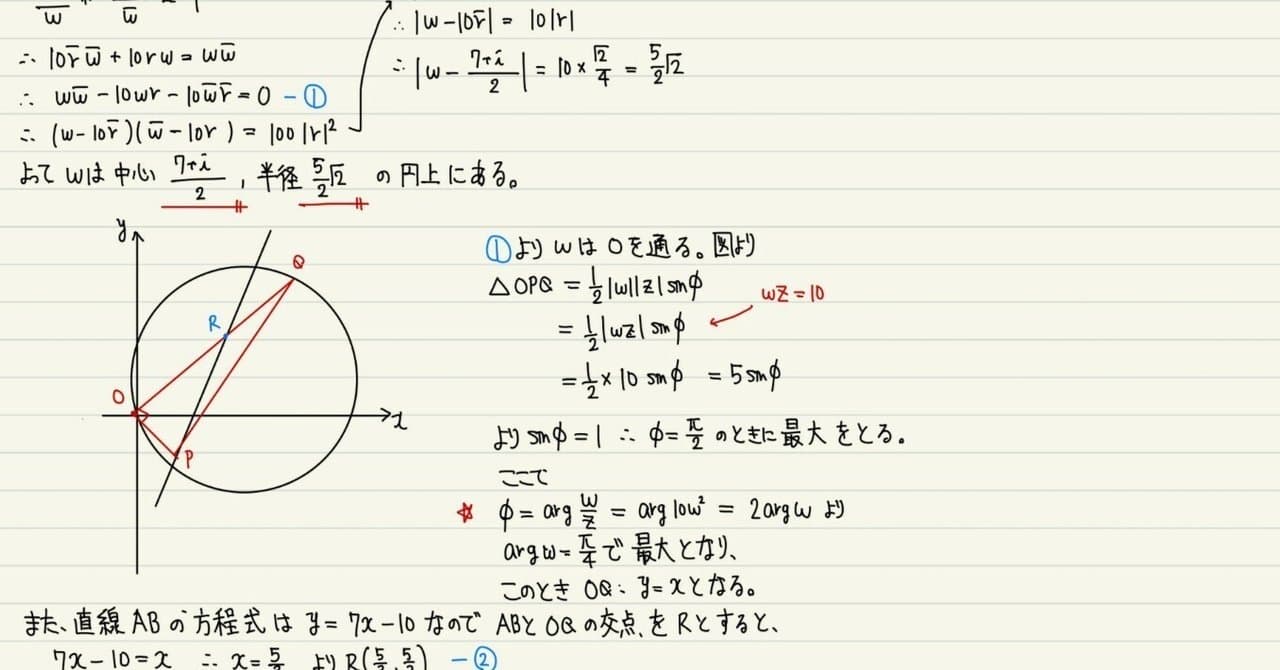 w̄ w̄ 1
∴ 10r̄w̄ + 10rw = ww̄
∴ ww̄ - 10wr - 10w̄r̄ = 0 - ①
∴ (w-10r̄)(w̄-10r) = 100|r|²
∴ |w-10r̄| = 10|r|
∴ |w - (7+i)/2| = 10 × √2/4 = 5/2√2
よって wは 中心 (7+i)/2 , 半径 5/2√2 の円上にある。
y
Q
R
O
x
P
①より wは Oを通る。図より
△OPQ = 1/2|w||z|sinφ
wz=10
= 1/2|wz|sinφ
= 1/2×10 sinφ = 5sinφ
より sinφ=1 ∴ φ=π/2 のときに最大をとる。
ここで
☆ φ = arg w/z = arg10w² = 2argw より
argw=π/4で最大となり、
このとき OQ: y=xとなる。
また、直線ABの方程式は y=7x-10なので ABとOQの交点をRとすると、
7x-10=x ∴ x=5/ より R(5/ , 5/ ) - ②